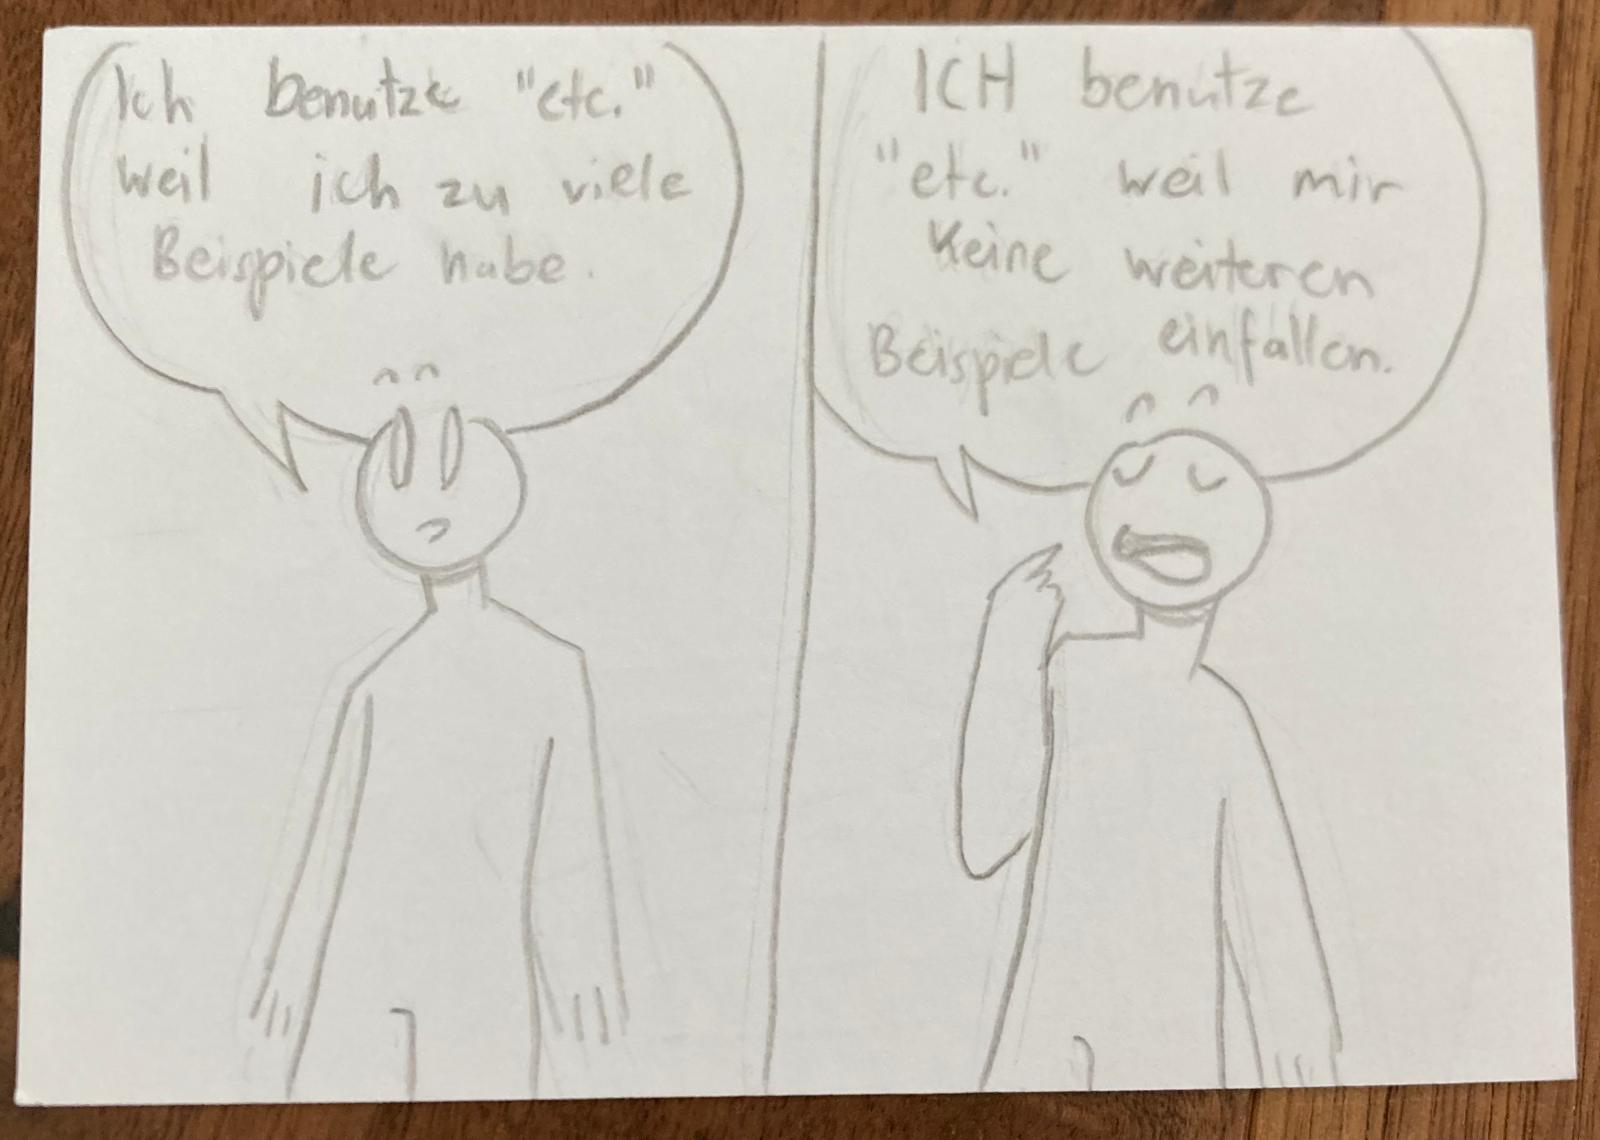 Ich benutze "etc."
weil ich zu viele
Beispiele habe.
ICH benutze
"etc." weil mir
Keine weiteren
Beispiele einfallen.